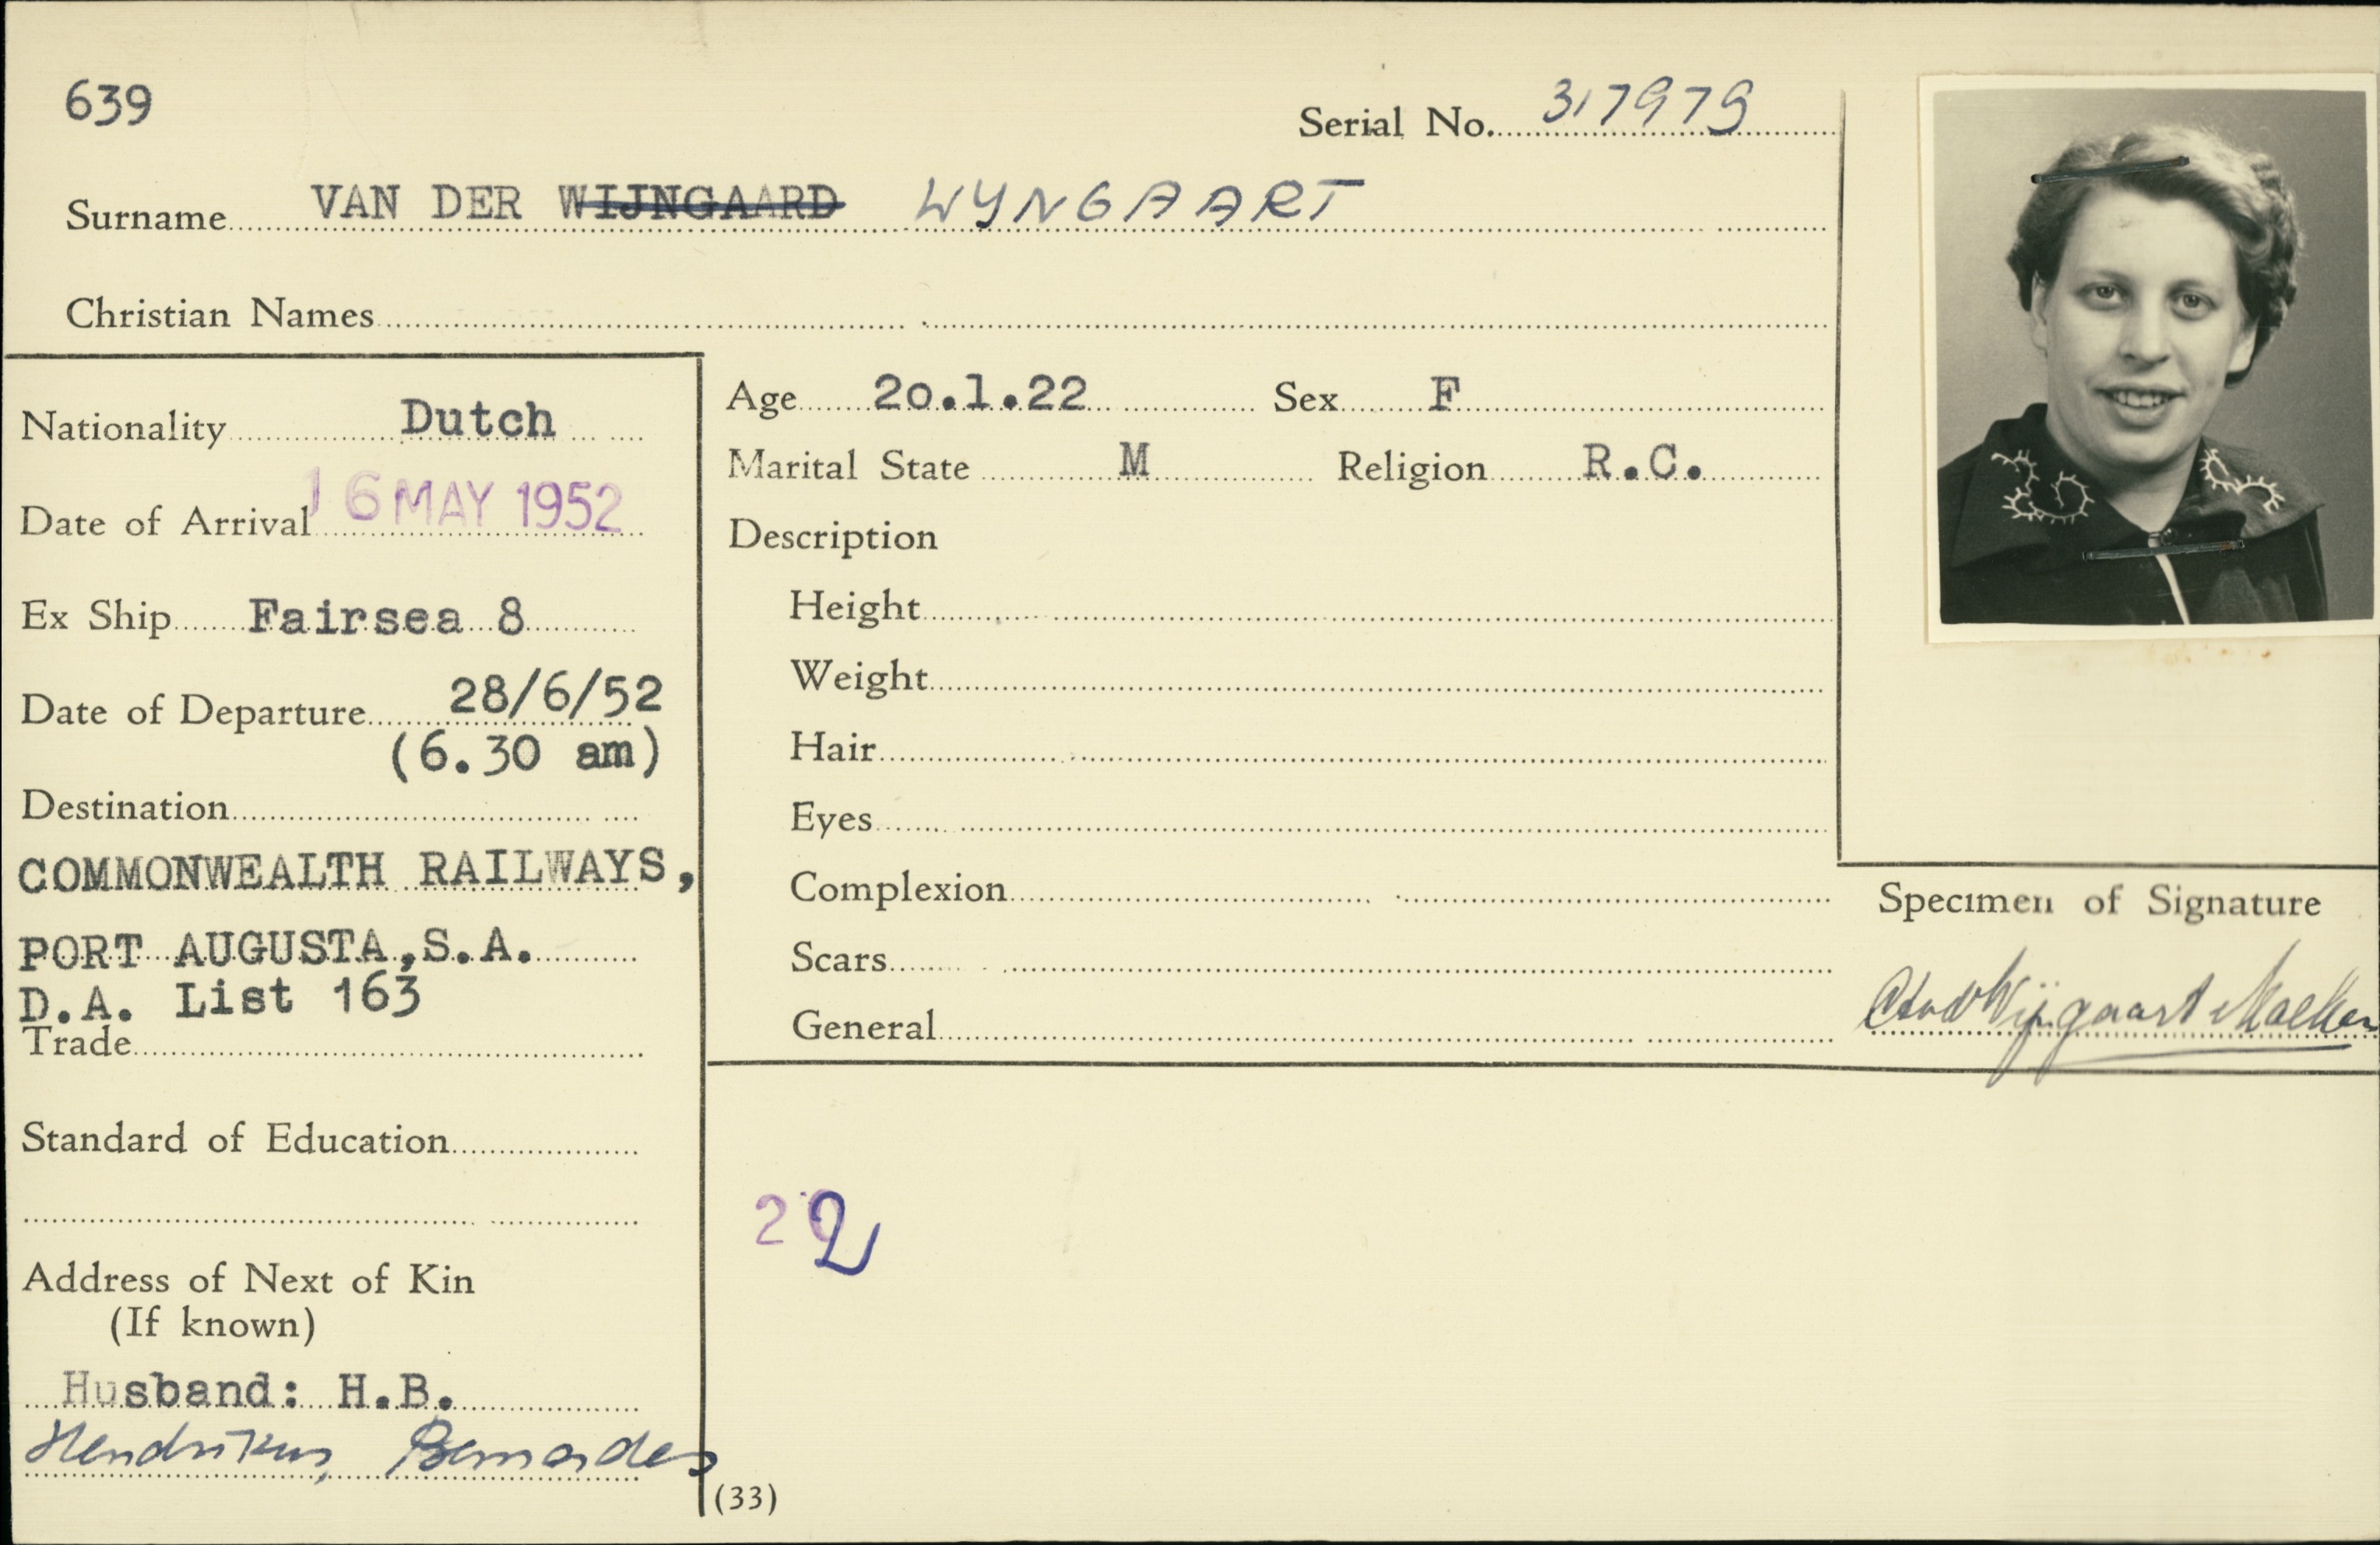 639
Serial No. 317979
Surname VAN DER WIJNGAARD WYNGAART
Christian Names
Nationality Dutch
Date of Arrival 16 MAY 1952
Ex Ship Fairsea 8
Date of Departure 28/6/52
(6.30 am)
Destination
COMMONWEALTH RAILWAYS,
PORT AUGUSTA, S.A.
D.A. List 163
Trade
Standard of Education
Address of Next of Kin
(If known)
Husband: H.B.
Hendrikus,
Age 20.1.22 Sex F
Marital State M Religion R.C.
Description
Height
Weight
Hair
Eyes
Complexion
Scars
General
Specimen of Signature
22
(33)